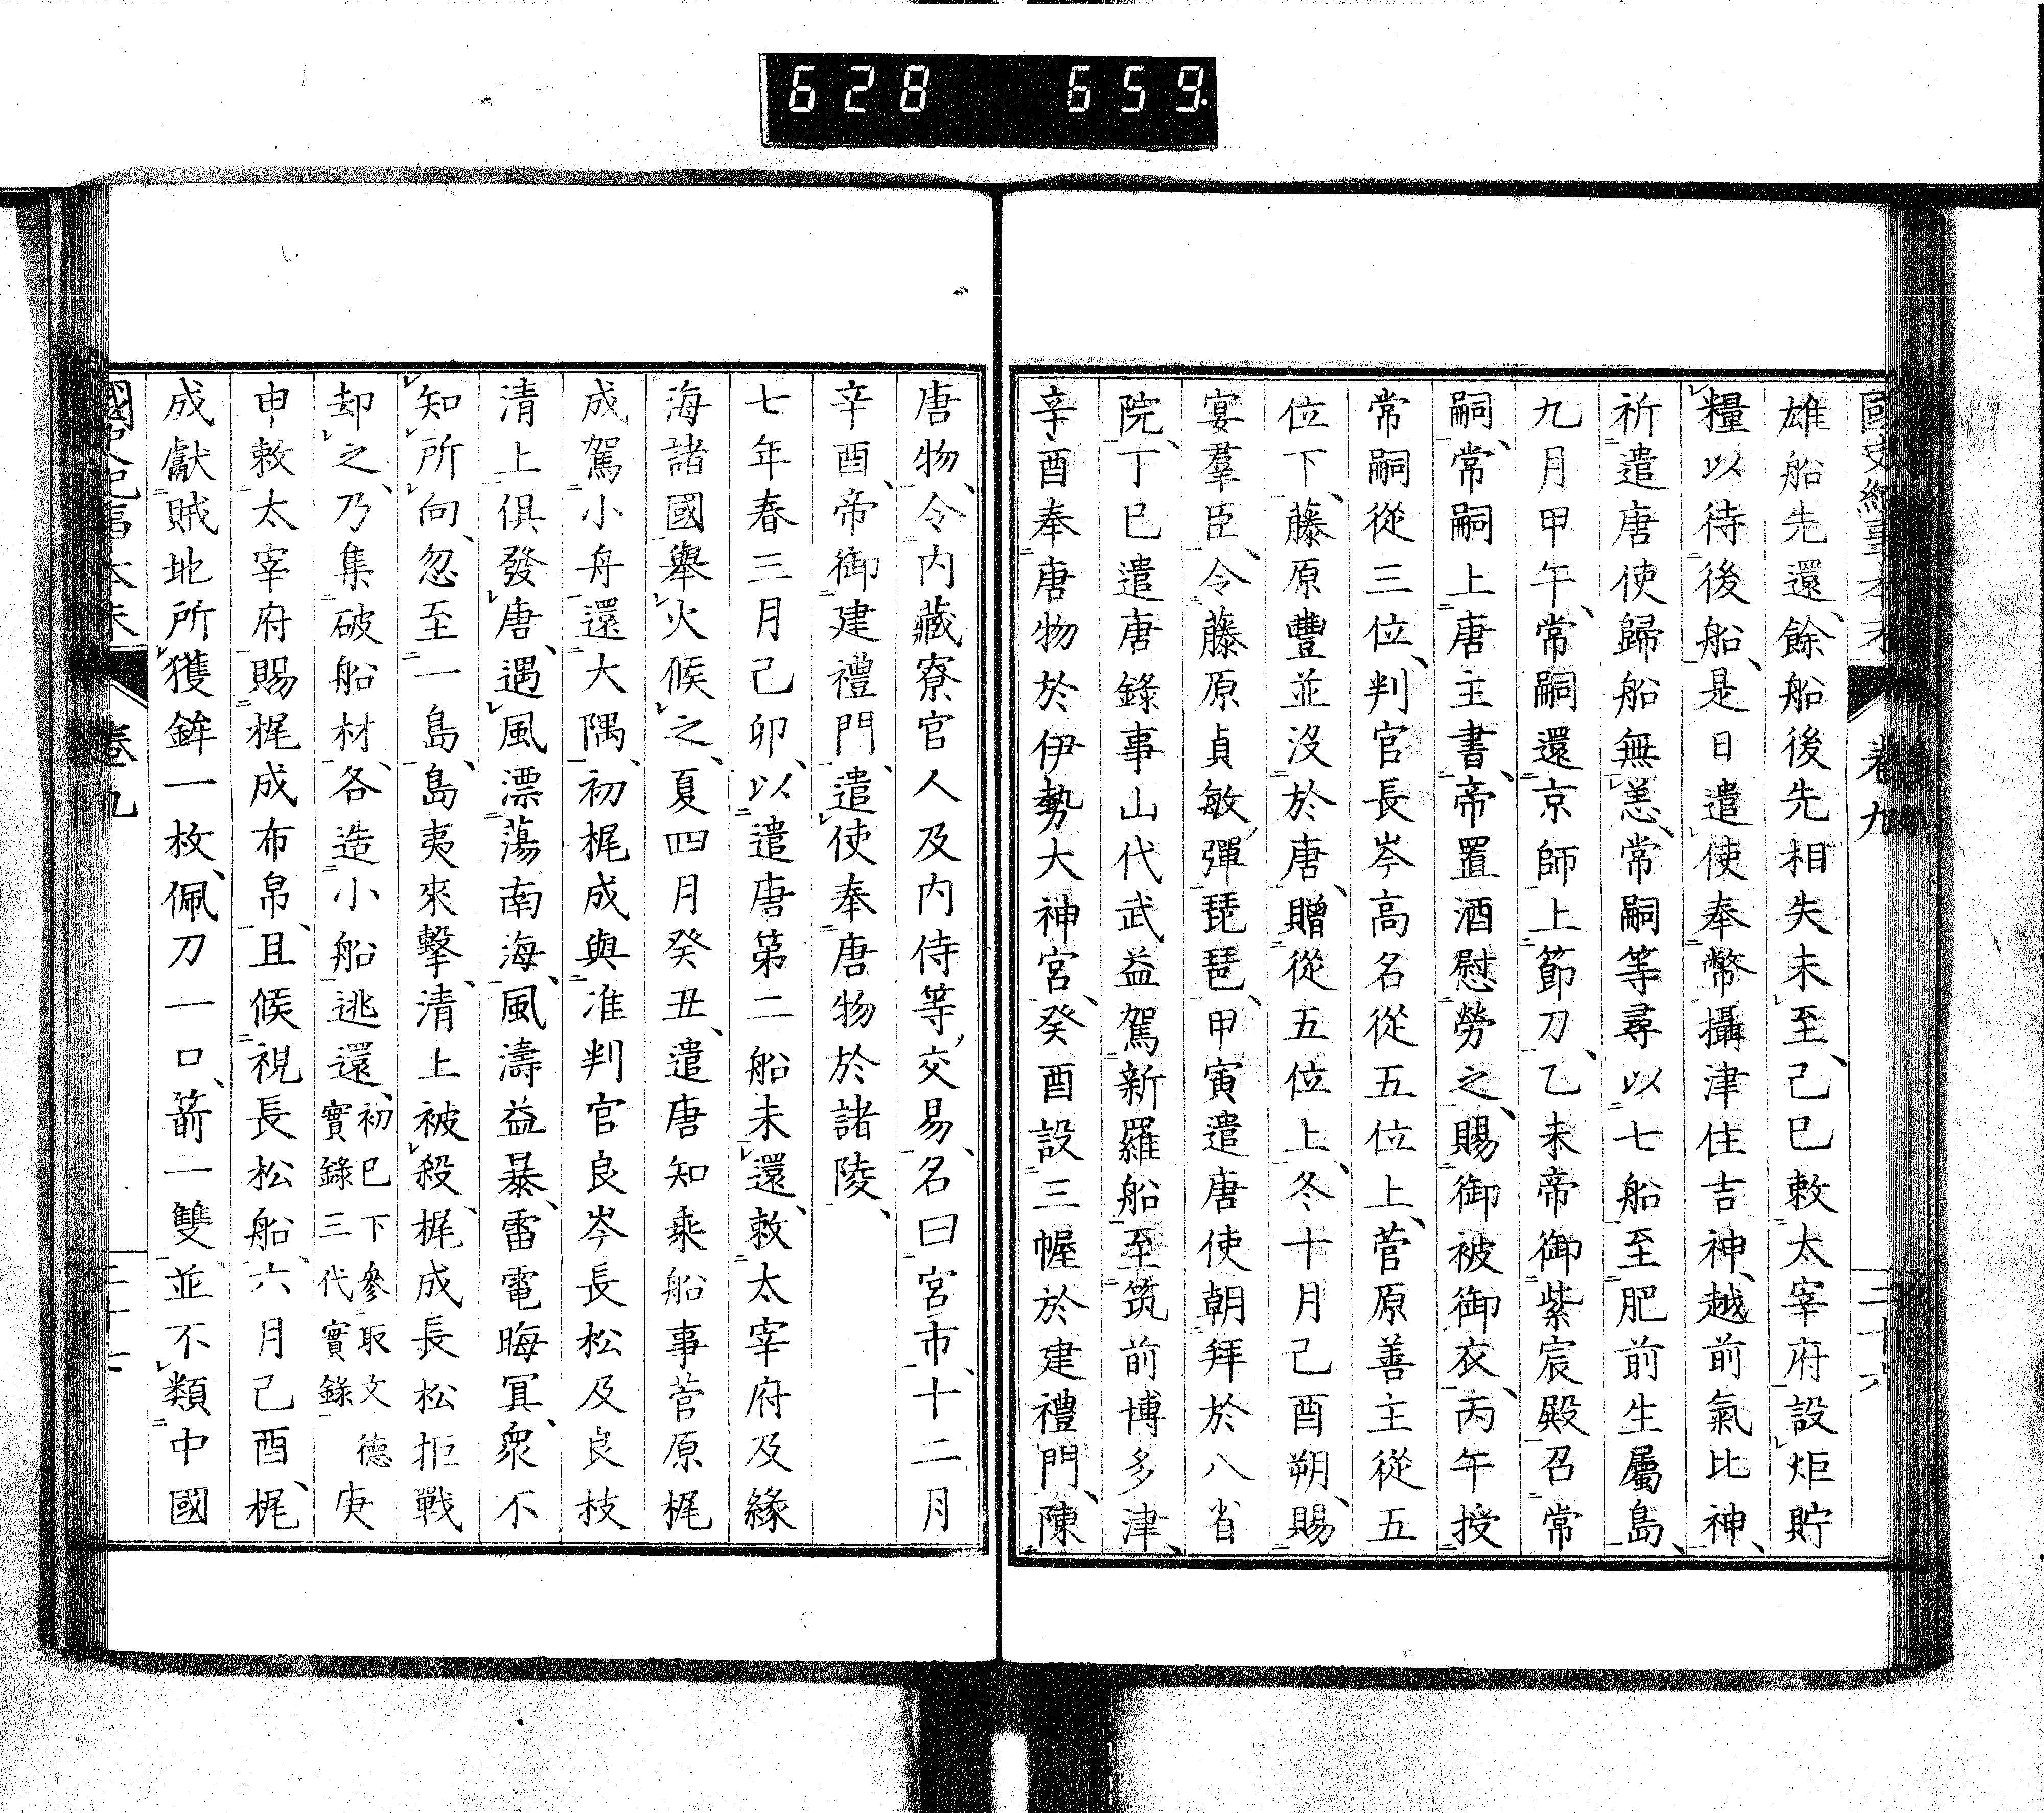 628 659
國史紀事本末 卷九 三十六
雄船先還、餘船後先相失未至、己巳敕太宰府設炬貯
糧以待後船、是日遣使奉幣攝津住吉神、越前氣比神、
祈遣唐使歸船無恙、常嗣等尋以七船至肥前生屬島、
九月甲午、常嗣還京師上節刀、乙未帝御紫宸殿召常
嗣、常嗣上唐主書、帝置酒慰勞之、賜御被御衣、丙午授
常嗣從三位、判官長岑高名從五位上、菅原善主從五
位下、藤原豐並沒於唐、贈從五位上、冬十月己酉朔、賜
宴羣臣、令藤原貞敏彈琵琶、甲寅遣唐使朝拜於八省
院、丁巳遣唐錄事山代武益駕新羅船至筑前博多津、
辛酉奉唐物於伊勢大神宮、癸酉設三幄於建禮門、陳
唐物、令內藏寮官人及內侍等、交易、名曰宮市、十二月
辛酉、帝御建禮門、遣使奉唐物於諸陵、
七年春三月己卯、以遣唐第二船未還、敕太宰府及緣
海諸國舉火候之、夏四月癸丑、遣唐知乘船事菅原梶
成駕小舟還大隅、初梶成與准判官良岑長松及良枝
清上俱發唐、遇風漂蕩南海、風濤益暴、雷電晦冥、衆不
知所向、忽至一島、島夷來擊、清上被殺、梶成長松拒戰
却之、乃集破船材、各造小船逃還、初已下參取文德實錄三代實錄 庚
申敕太宰府賜梶成布帛、且候視長松船、六月己酉、梶
成獻賊地所獲鉾一枚、佩刀一口、箭一雙、並不類中國
國史紀事本末 卷九 三十七